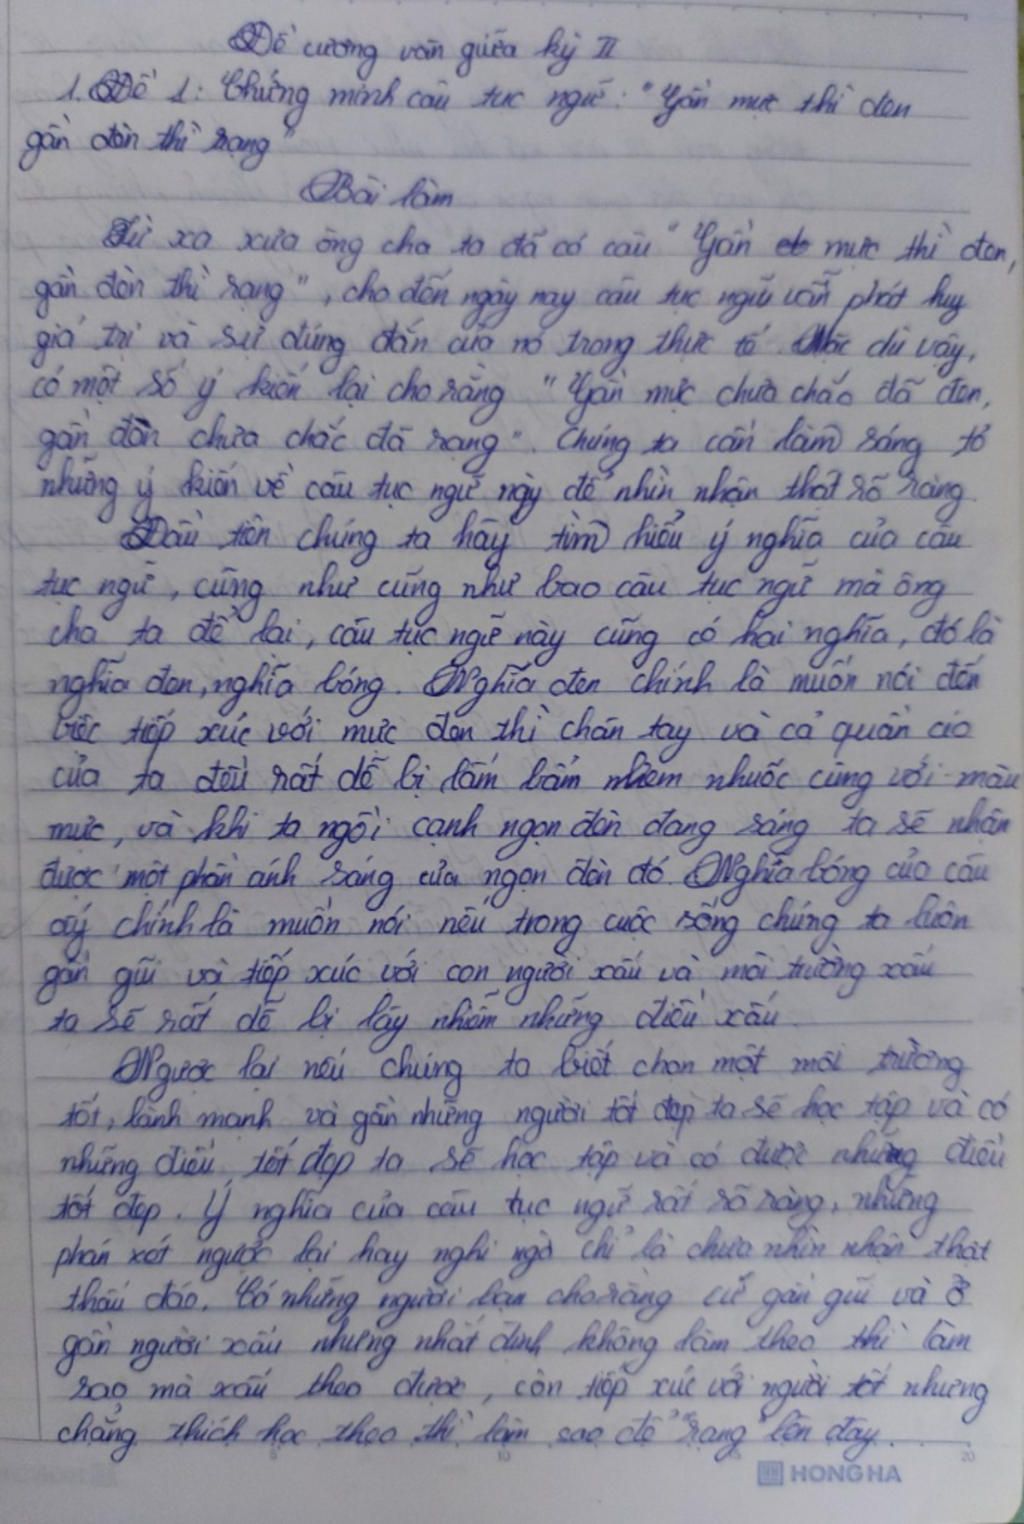 Đề cương văn giữa kỳ II
1. Đề 1: Chứng minh câu tục ngữ: "Gần mực thì đen
gần đèn thì rạng"
Bài làm
Từ xa xưa ông cha ta đã có câu "Gần mực thì đen,
gần đèn thì rạng", cho đến ngày nay câu tục ngữ vẫn phát huy
giá trị và sự đúng đắn của nó trong thực tế. Mặc dù vậy,
có một số ý kiến lại cho rằng "Gần mực chưa chắc đã đen,
gần đèn chưa chắc đã rạng". Chúng ta cần làm sáng tỏ
những ý kiến về câu tục ngữ này để nhìn nhận thật rõ ràng.
Đầu tiên chúng ta hãy tìm hiểu ý nghĩa của câu
tục ngữ, cũng như cũng như bao câu tục ngữ mà ông
cha ta để lại, câu tục ngữ này cũng có hai nghĩa, đó là
nghĩa đen, nghĩa bóng. Nghĩa đen chính là muốn nói đến
việc tiếp xúc với mực đen thì chân tay và cả quần áo
của ta đều rất dễ bị lấm bẩn nhem nhuốc cùng với màu
mực, và khi ta ngồi cạnh ngọn đèn đang sáng ta sẽ nhận
được một phần ánh sáng của ngọn đèn đó. Nghĩa bóng của câu
ấy chính là muốn nói nếu trong cuộc sống chúng ta luôn
gần gũi và tiếp xúc với con người xấu và môi trường xấu
ta sẽ rất dễ bị lây nhiễm những điều xấu.
Ngược lại nếu chúng ta biết chọn một môi trường
tốt, lành mạnh và gần những người tốt đẹp ta sẽ học tập và có
những điều tốt đẹp ta sẽ học tập và có được những điều
tốt đẹp. Ý nghĩa của câu tục ngữ rất rõ ràng, những
phán xét ngược lại hay nghi ngờ chỉ là chưa nhìn nhận thật
thấu đáo. Có những người bạn cho rằng cứ gần gũi và ở
gần người xấu nhưng nhất định không làm theo thì làm
sao mà xấu theo được, còn tiếp xúc với người tốt nhưng
chẳng thích học theo thì làm sao để "rạng" lên đây.
HONG HA